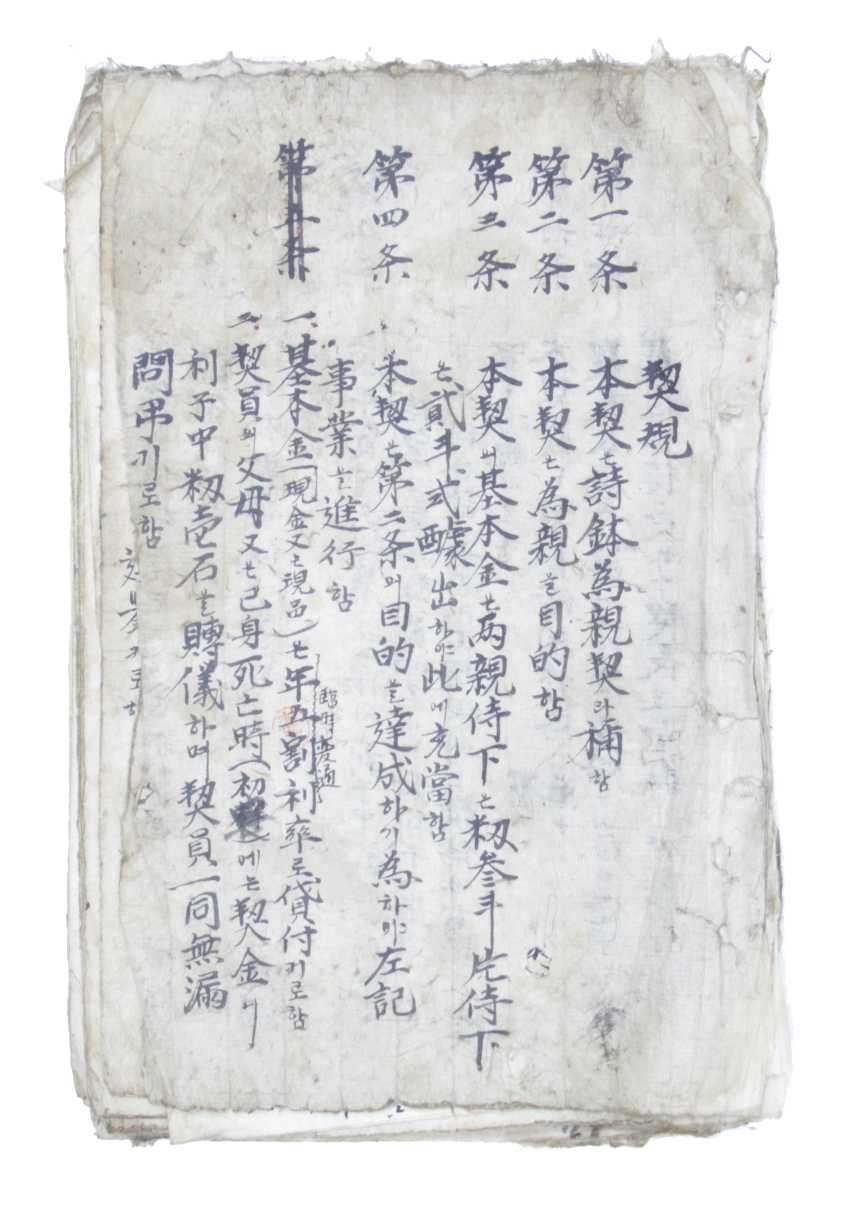 契規
第一条 本契는 詩鉢為親契라 稱함
第二条 本契는 為親을 目的함
第三条 本契의 基本金은 両親侍下는 籾叁斗 片侍下
는 貳斗式 醵出하야 此에 充當함
第四条 本契는 第二条의 目的을 達成하기 為하야 左記
事業을 進行함
一、基本金(現金又는 現品)은 年五割利率로 貸付기로 함
臨時変通
二、契員의 父母 又는 己身 死亡時(初 에는 契金의
利子中 籾壱石을 賻儀하며 契員 一同 無漏
問吊기로 함
기로